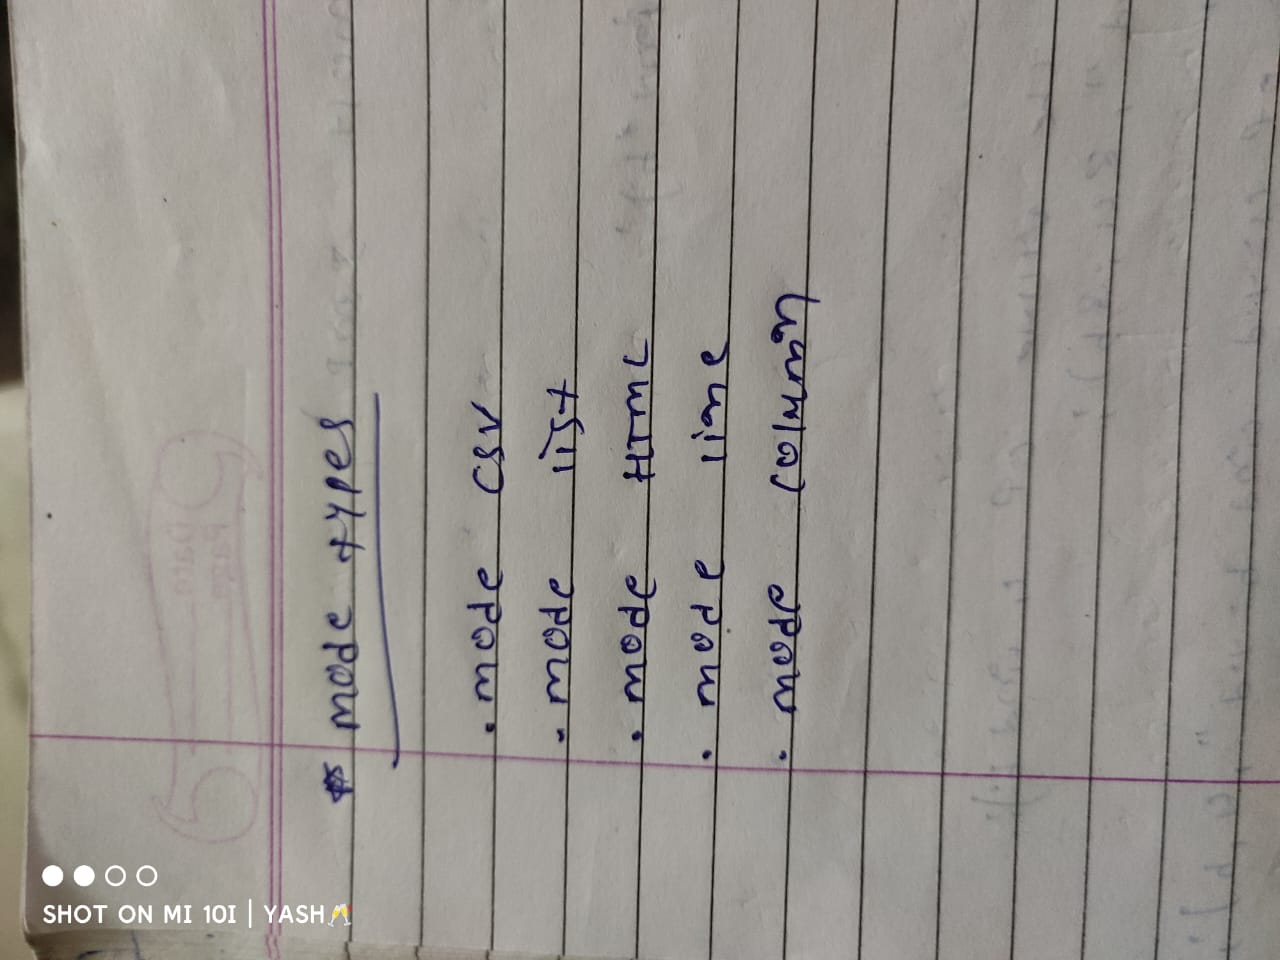 * mode types
. mode CSV
. mode list
. mode HTML
. mode line
. mode column
SHOT ON MI 10I | YASH🥂